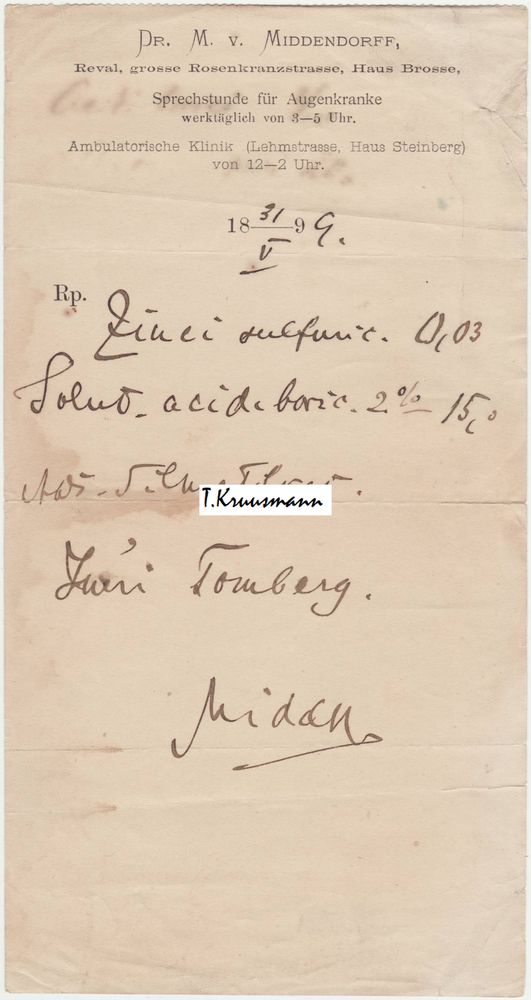 Dr. M. v. Middendorff,
Reval, grosse Rosenkranzstrasse, Haus Brosse,
Sprechstunde für Augenkranke
werktäglich von 3—5 Uhr.
Ambulatorische Klinik (Lehmstrasse, Haus Steinberg)
von 12—2 Uhr.
18 31/V 99.
Rp. Zinci sulfuric. 0,03
Solut. acid. boric. 2% 15,0
T.Kruusmann
Jüri Tomberg.